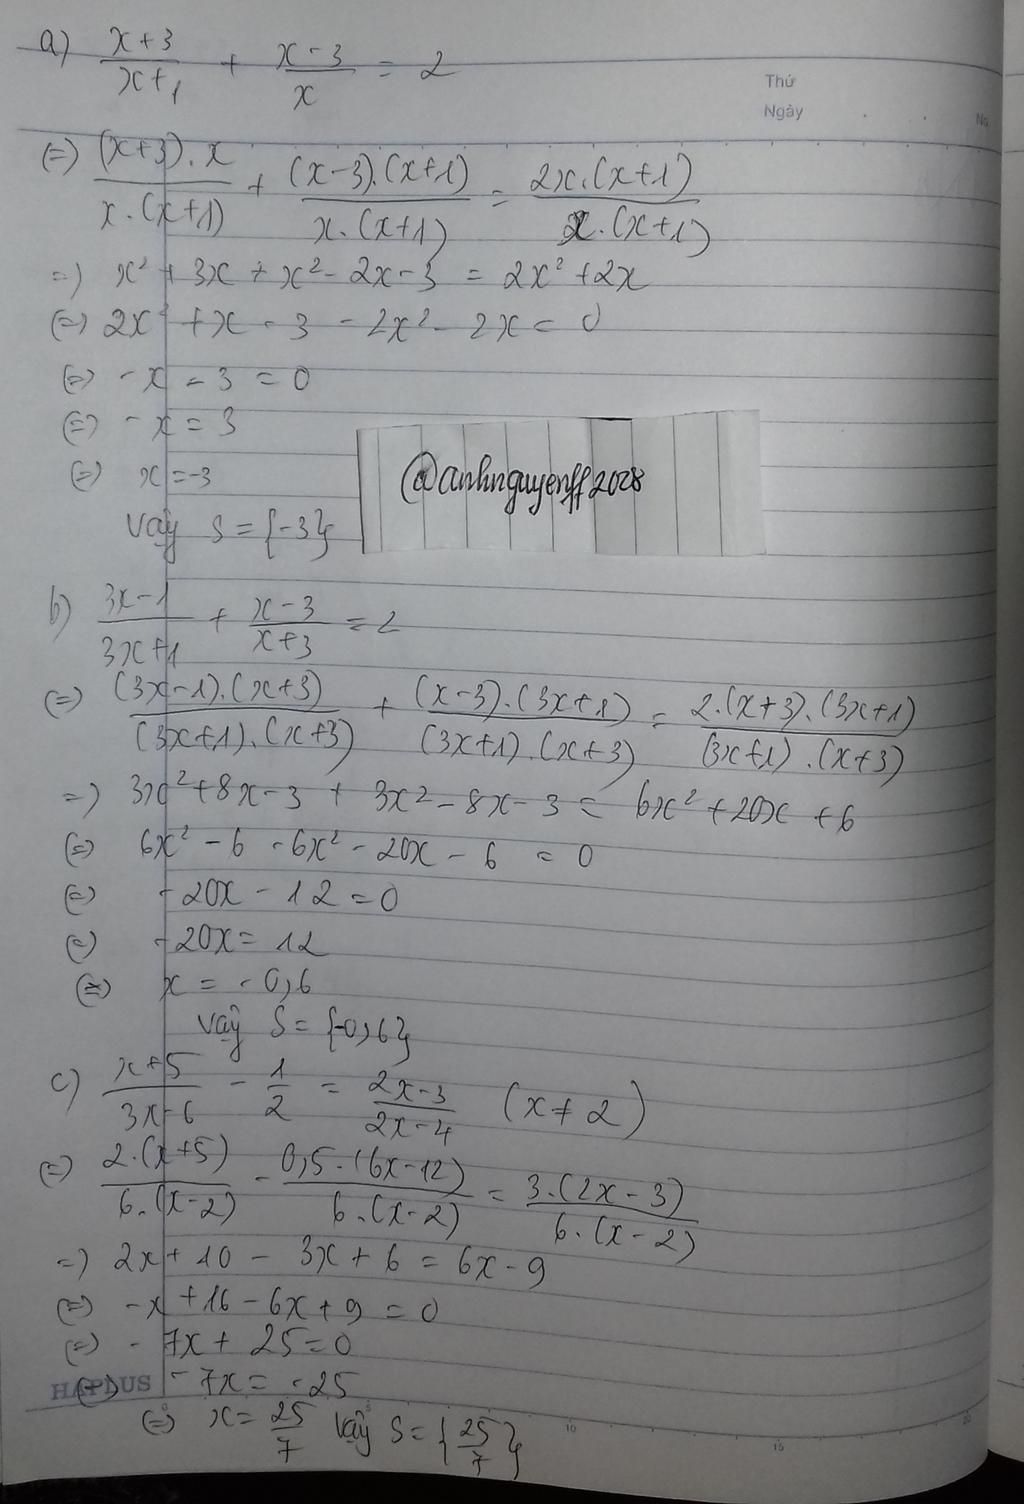 a) (x+3)/(x+1) + (x-3)/x = 2
Thứ
Ngày
No
(=) ((x+3).x)/(x.(x+1)) + ((x-3).(x+1))/(x.(x+1)) = (2x.(x+1))/(x.(x+1))
=) x² + 3x + x² - 2x - 3 = 2x² + 2x
(=) 2x² + x - 3 - 2x² - 2x = 0
(=) - x - 3 = 0
(=) - x = 3
(=) x = -3
@anhnguyenff2028
vậy S = {-3}
b) (3x-1)/(3x+1) + (x-3)/(x+3) = 2
(=) ((3x-1).(x+3))/((3x+1).(x+3)) + ((x-3).(3x+1))/((3x+1).(x+3)) = (2.(x+3).(3x+1))/((3x+1).(x+3))
=) 3x² + 8x - 3 + 3x² - 8x - 3 = 6x² + 20x + 6
(=) 6x² - 6 - 6x² - 20x - 6 = 0
(=) - 20x - 12 = 0
(=) - 20x = 12
(=) x = -0,6
vậy S = {-0,6}
c) (x+5)/(3x-6) - 1/2 = (2x-3)/(2x-4) (x ≠ 2)
(=) (2.(x+5))/(6.(x-2)) - (0,5.(6x-12))/(6.(x-2)) = (3.(2x-3))/(6.(x-2))
=) 2x + 10 - 3x + 6 = 6x - 9
(=) -x + 16 - 6x + 9 = 0
(=) - 7x + 25 = 0
HAPLUS (=) - 7x = -25
(=) x = 25/7 vậy S = {25/7}
5 10 15 20